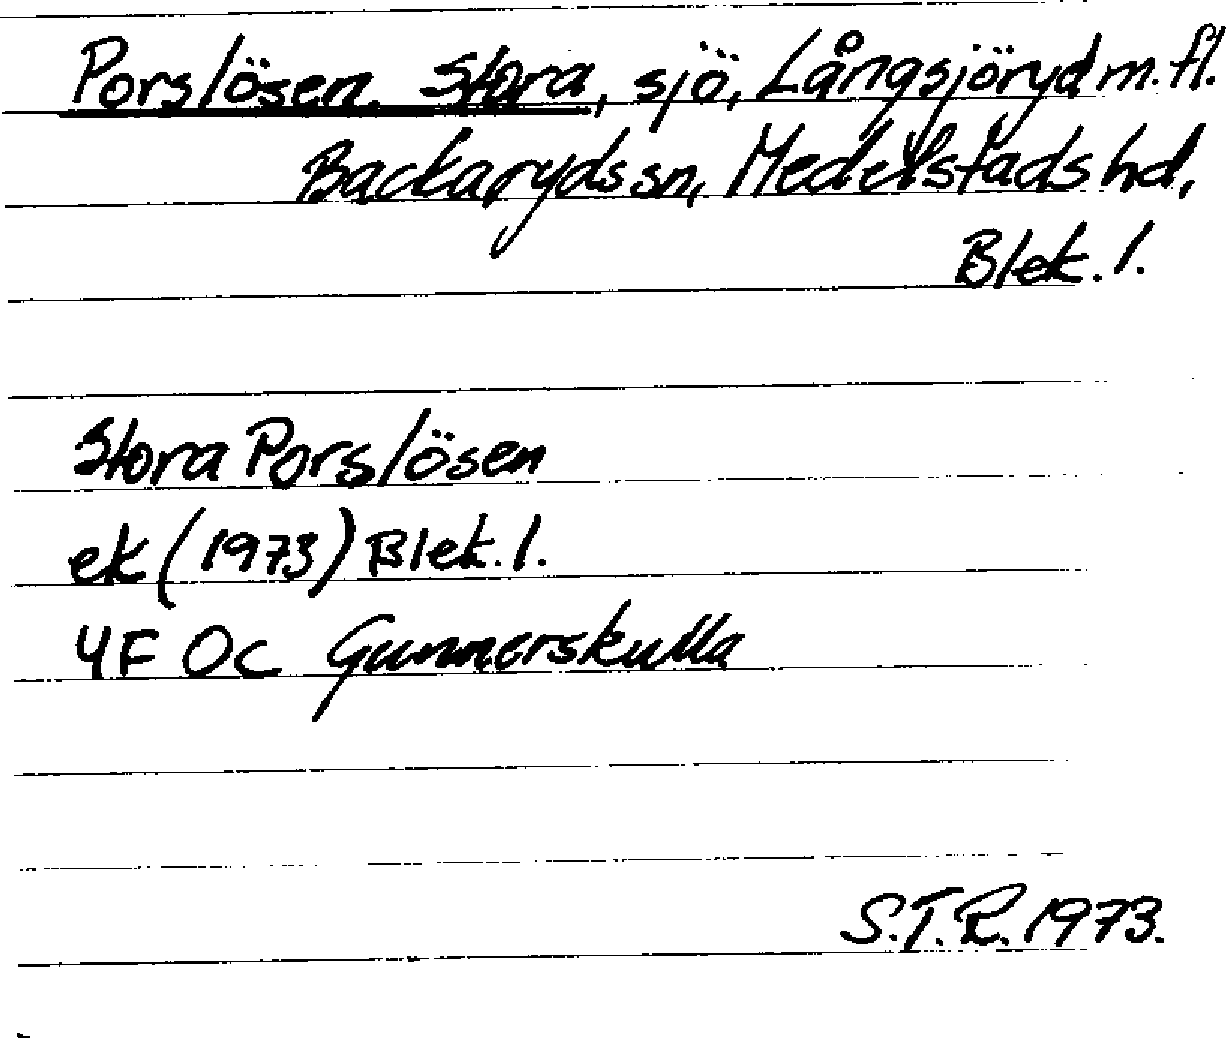 Porslösen, Stora, sjö, Långsjöryd m.fl.
Backaryds sn, Medelstads hd,
Blek. l.
Stora Porslösen
ek (1973) Blek. l.
4F 0c Gunnerskulla
S.T.R. 1973.